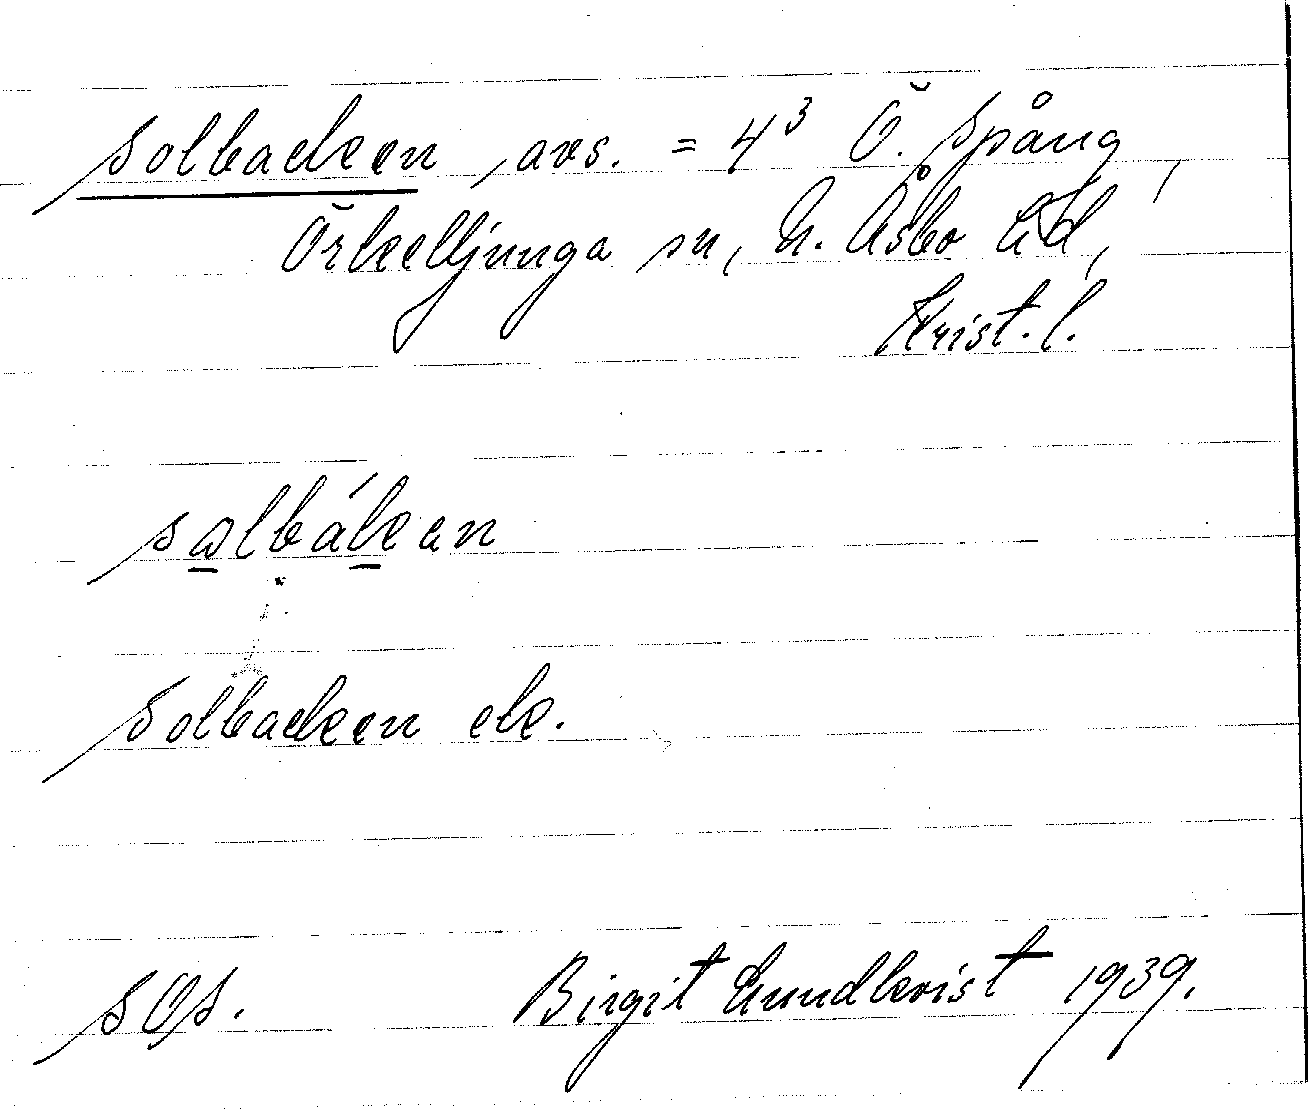 Solbacken, avs. = 4³ Ö. Spång,
Örkelljunga sn, N. Åsbo hd,
Krist. l.
salbákan
Solbacken ek.
SOS. Birgit Lundkvist 1939.